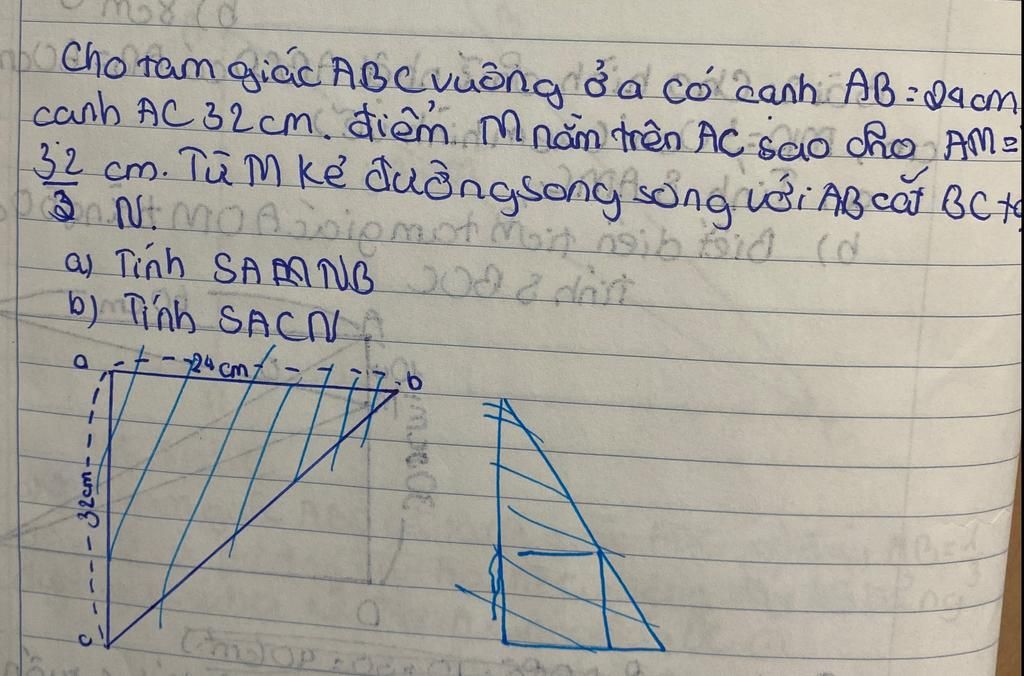 Cho tam giác ABC vuông ở a có canh AB = 24cm
canh AC 32 cm. điểm M nằm trên AC sao cho AM =
32/3 cm. Từ M kẻ đường song song với AB cắt BC tạ
N.
a) Tính SAMNB
b) Tính SACN
a 24 cm b
32cm
c